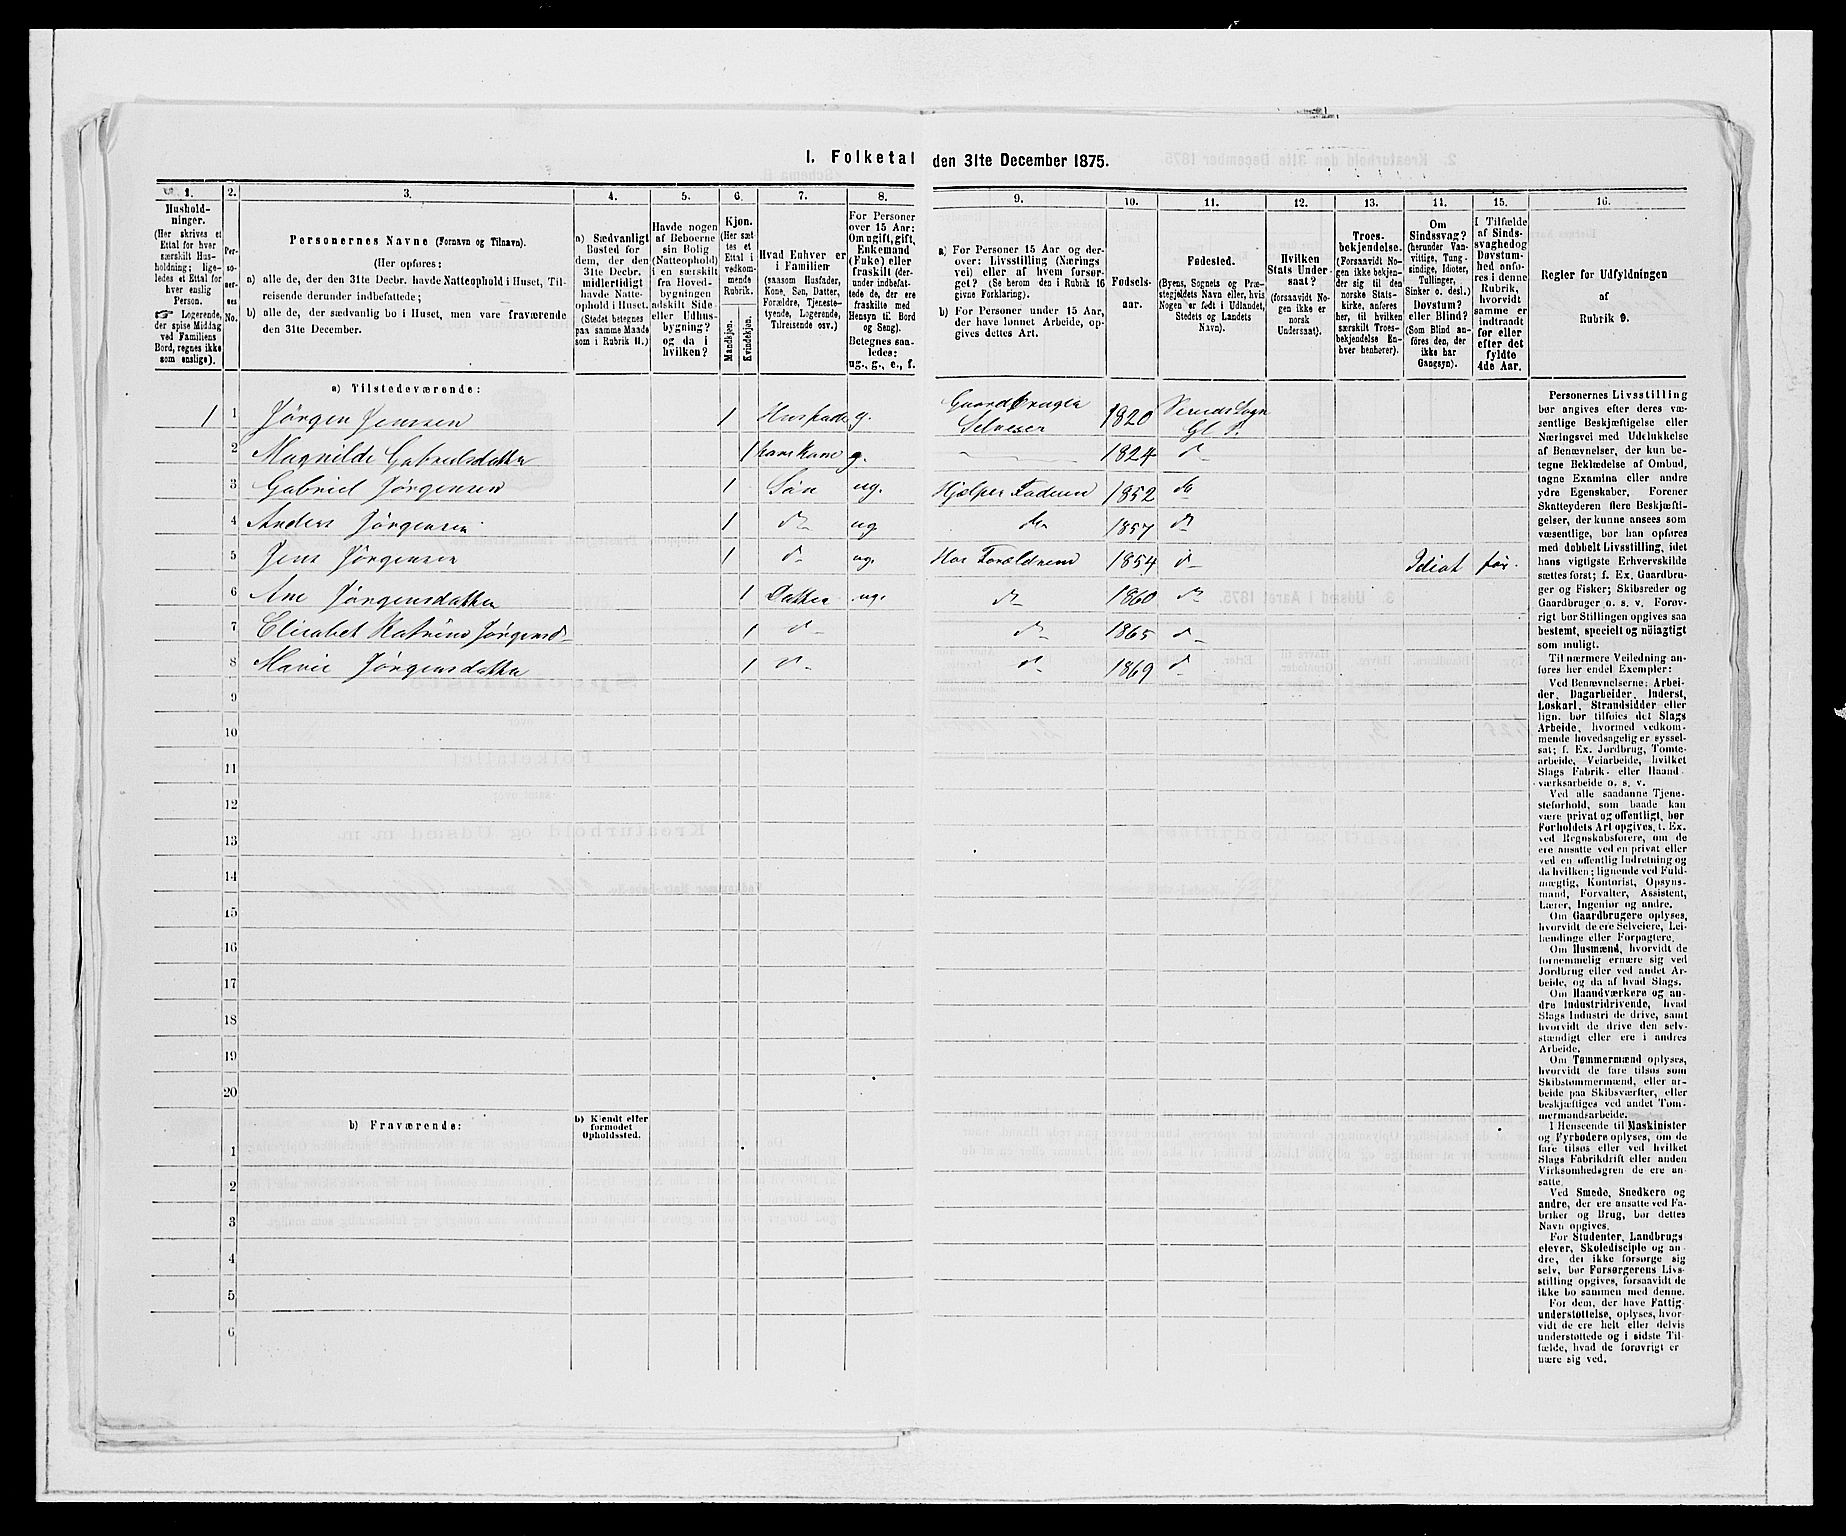 I. Folketal den 31te December 1875.
1. 2. 3. 4. 5. 6. 7. 8. 9. 10. 11. 12. 13. 14. 15. 16.
Hushold-
ninger.
(Her skrives et
Ettal for hver
særskilt Hus-
holdning; lige-
ledes et Ettal for
hver enslig
Person.
☞ Logerende,
der spise Middag
ved Familiens
Bord, regnes ikke
som enslige).
Per-
so-
ner-
nes
No.
Personernes Navne (Fornavn og Tilnavn).
(Her opføres:
a) alle de, der den 31te Decbr. havde Natteophold i Huset, Til-
reisende derunder indbefattede;
b) alle de, der sædvanlig bo i Huset, men vare fraværende
den 31te Decbr.
a) Sædvanligt
Bosted for
dem, der den
31te Decbr.
midlertidigt
havde Natte-
ophold i Huset.
(Stedet betegnes
paa samme Maade
som i Rubrik 11.)
Havde nogen
af Beboerne
sin Bolig
(Natteophold)
i en særskilt
fra Hoved-
bygningen
adskilt Side
eller Udhus-
bygning?
og da i
hvilken?
Kjøn.
(Her sæt-
tes et
Ettal i
vedkom-
mende
Rubrik.
Mandkjøn.
Kvindekjøn.
Hvad Enhver er
i Familien
(saasom Husfader,
Kone, Søn, Datter,
Forældre, Tjeneste-
tyende, Logerende,
Tilreisende osv.)
For Personer
over 15 Aar:
Om ugift, gift,
Enkemand
(Enke) eller
fraskilt (der-
under indbefat-
tede de, der ere
fraskilte med
Hensyn til Bord
og Seng).
Betegnes saa-
ledes:
ug., g., e., f.
a) For Personer 15 Aar og der-
over: Livsstilling (Nærings-
vei) eller af hvem forsør-
get? (Se herom den i Rubrik 16
givne Forklaring).
b) For Personer under 15 Aar,
der have lønnet Arbeide, op-
gives dettes Art.
Fødsels-
aar.
Fødested.
(Byens, Sognets og Præ-
stegjeldets Navn eller, hvis
Nogen er født i Udlandet,
Stedets og Landets
Navn).
Hvilken
Stats Under-
saat?
(forsaavidt No-
gen ikke er
norsk
Undersaat).
Troes-
bekjendelse.
(Forsaavidt No-
gen ikke bekjen-
der sig til den
norske Stats-
kirke, anføres
her, til hvilken
særskilt Troes-
bekjendelse En-
hver henhører).
Om
Sindssvag?
(herunder Van-
vittige, Tung-
sindige, Idioter,
Tullinger,
Sinker o. desl.)
Døvstum?
eller Blind?
(Som Blind an-
føres den, der
ikke har
Gangsyn).
I Tilfælde
af Sinds-
svaghed og
Døvstum-
hed anfø-
res i denne
Rubrik,
hvorvidt
samme er
indtraadt
før eller
efter det
fyldte
4de Aar.
Regler for Udfyldningen
af
Rubrik 9.
a) Tilstedeværende:
1 1 Jørgen Jensen 1 Husfader g. Gaardbruger Selveier 1820 Sogn Gl. P.
2 Magnilde Gabrielsdatter 1 hans Kone g. — — 1824 do
3 Gabriel Jørgensen 1 Søn ug. Hjelper Faderen 1852 do
4 Anders Jørgensen 1 do ug do 1857 do
5 Jens Jørgensen 1 do ug. Hos Forældrene 1854 do Idiot før.
6 Ane Jørgensdatter 1 Datter ug. do 1860 do
7 Elisabet Katrine Jørgensd 1 do do 1865 do
8 Marie Jørgensdatter 1 do do 1869 do
9
10
11
12
13
14
15
16
17
18
19
20
b) Fraværende:
b) Kjendt eller
formodet
Opholdssted.
1
2
3
4
5
6
Personernes Livsstilling
bør angives efter deres væ-
sentlige Beskjæftigelse eller
Næringsvei med Udelukkelse
af Benævnelser, der kun be-
tegne Beklædelse af Ombud,
tagne Examina eller andre
ydre Egenskaber. Forener
Skatteyderen flere Beskjæfti-
gelser, der kunne ansees som
væsentlige, bør han opføres
med dobbelt Livsstilling, idet
hans vigtigste Erhvervskilde
sættes først; f. Ex. Gaardbru-
ger og Fisker; Skibsreder og
Gaardbruger o. s. v. Forøv-
rigt bør Stillingen opgives saa
bestemt, specielt og nöiagtigt
som muligt.
Til nærmere Veiledning an-
føres her endel Exempler:
Ved Benævnelserne: Arbei-
der, Dagarbeider, Inderst,
Løskarl, Strandsidder eller
lign. bør tilføies det Slags
Arbeide, hvormed vedkom-
mende hovedsagelig er syssel-
sat; f. Ex. Jordbrug, Tomte-
arbeide, Veiarbeide, hvilket
Slags Fabrik- eller Haand-
værksarbeide o. s. v.
Ved alle saadanne Tjene-
steforhold, som baade kan
være privat og offentligt, bør
Forholdets Art opgives, t. Ex.
ved Regnskabsførere, om de
ere ansatte ved en privat eller
ved en offentlig Indretning og
da hvilken; lignende ved Fuld-
mægtig, Kontorist, Opsyns-
mand, Forvalter, Assistent,
Lærer, Ingeniør og andre.
Om Gaardbrugere oplyses,
hvorvidt de ere Selveiere, Lei-
lændinge eller Forpagtere.
Om Husmænd, hvorvidt de
fornemmelig ernære sig ved
Jordbrug eller ved andet Ar-
beide, og da af hvad Slags.
Om Haandværkere og an-
dre Industridrivende, hvad
Slags Industri de drive, samt
hvorvidt de drive den selv-
stændigt eller ere i andres
Arbeide.
Om Tømmermænd oplyses,
hvorvidt de fare tilsøs som
Skibstømmermænd, eller ar-
beide paa Skibsværfter, eller
beskjæftiges ved andet Tøm-
mermandsarbeide.
I Henseende til Maskinister
og Fyrbødere oplyses, om de
fare tilsøs eller ved hvilket
Slags Fabrikdrift eller anden
Virksomhedsgren de ere an-
satte.
Ved Smede, Snedkere og
andre, der ere ansatte ved Fa-
briker og Brug, bør dettes
Navn opgives.
For Studenter, Landbrugs-
elever, Skoledisciple og an-
dre, der ikke forsørge sig
selv, bør Forsørgerens Livs-
stilling opgives, forsaavidt de
ikke bo sammen med denne.
For dem, der have Fattig-
understøttelse, oplyses, hvor-
vidt de ere helt eller delvis
understøttede og i sidste Til-
fælde, hvad de forøvrigt er
nære sig ved.